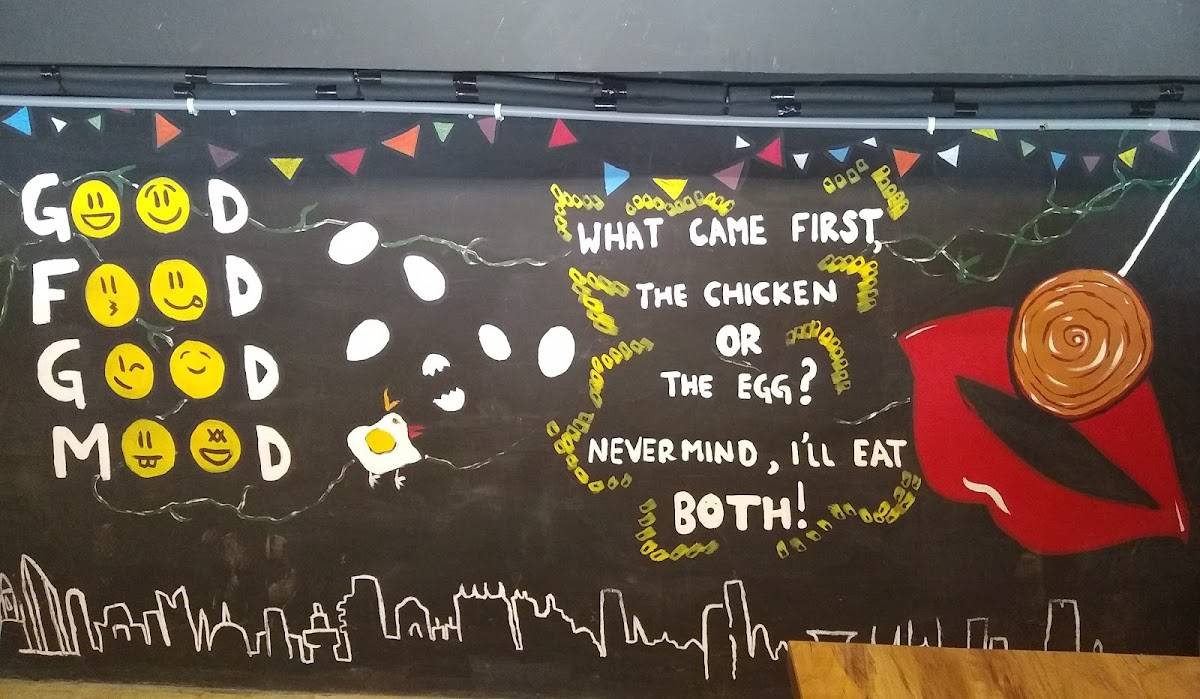 GOOD
FOOD
GOOD
MOOD
WHAT CAME FIRST,
THE CHICKEN
OR
THE EGG?
NEVERMIND, I'LL EAT
BOTH!